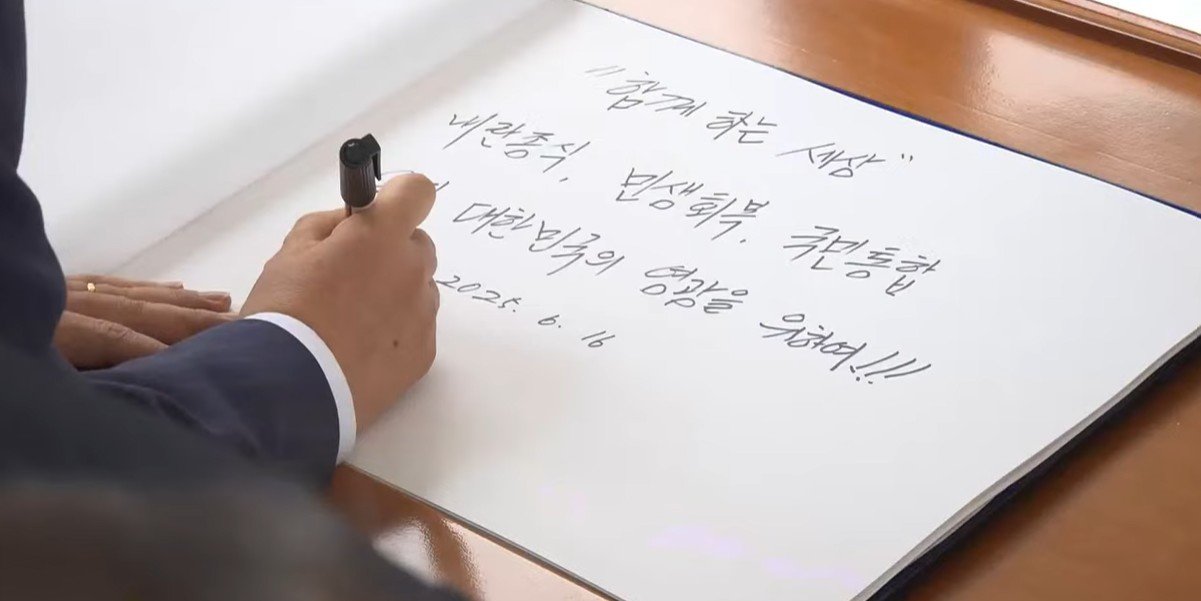 "함께 하는 세상"
내란종식, 민생회복, 국민통합
대한민국의 영광을 위하여!!!!
2025. 6. 16